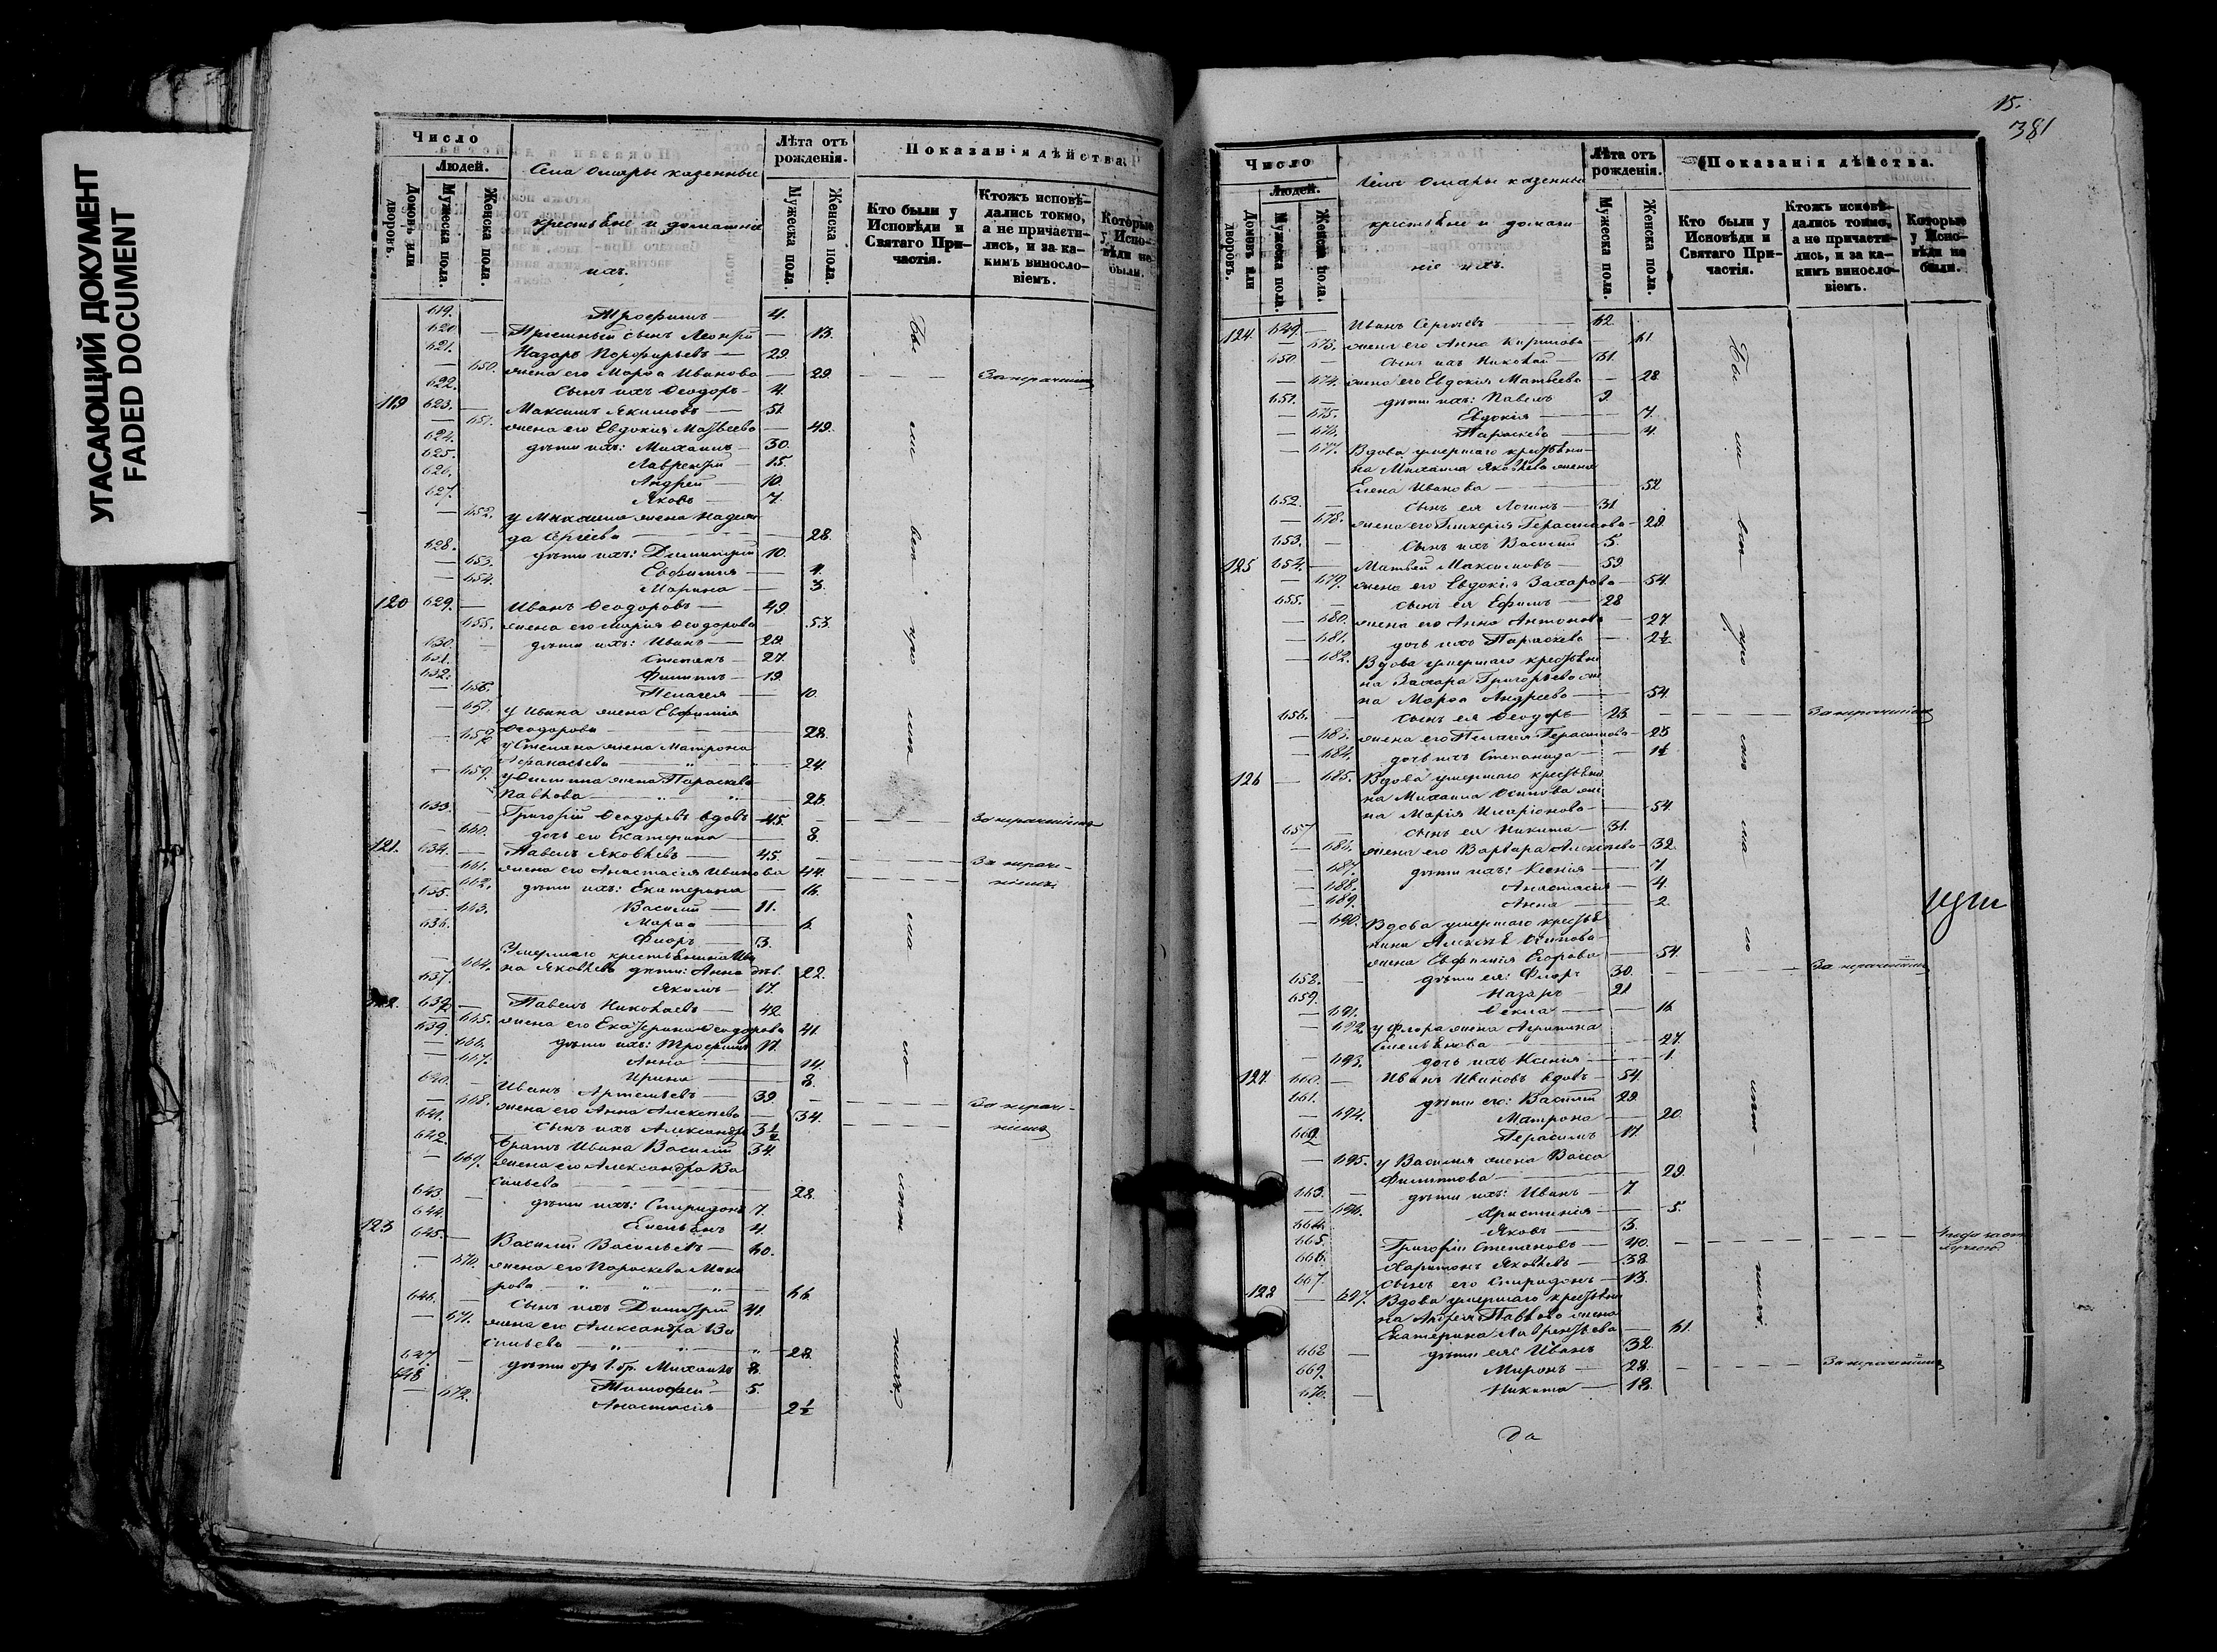 УГАСАЮЩИЙ ДОКУМЕНТ
FADED DOCUMENT
Число
Людей.
Домовъ или дворовъ.
Мужеска пола.
Женска пола.
Села Отары казенные
крестьяне и домашніе
ихъ.
Лѣта отъ рожденія.
Мужеска пола.
Женска пола.
Показанія дѣйства.
Кто были у Исповѣди и Святаго Причастія.
Ктожъ исповѣдались токмо, а не причастились, и за какимъ винословіемъ.
Которые у Исповѣди не были.
619. Трофимъ 4.
620 Леонтій 13.
621. Назаръ Порфирьевъ 29.
650. жена его Марѳа Иванова 29.
622. Сынъ ихъ Ѳеодоръ 4.
119 623. Максимъ Якимовъ 51
651. жена его Евдокія Матвеева 49.
624. дѣти ихъ: Михаилъ 30.
625. Лаврентій 15.
626. Андрей 10.
627. Яковъ 7.
652. у Михаила жена Надеж
да Сергіева 28.
628. дѣти ихъ: Димитрій 10.
653. Евфимія 4.
654. Марина 3.
120 629. Иванъ Ѳеодоровъ 49
655. жена его Марія Ѳеодорова 53.
630. дѣти ихъ: Иванъ 29.
631. Степанъ 27.
632. Филиппъ 19.
656. Пелагея 10.
657. у Ивана жена Евфимія
Ѳеодорова 28.
658 у Степана жена Матрона
Афанасьева 24.
659. у Филиппа жена Параскева
Павлова 23.
633. Григорій Ѳеодоровъ вдовъ 45.
660. дочь его Екатерина 8.
121. 634. Павелъ Яковлевъ 45.
661. жена его Анастасія Иванова 44.
662. дѣти ихъ: Екатерина 16.
635. Василій 11.
663. Марѳа 6.
636. Флоръ 3.
Умершаго крестьянина Ива
664. на Яковлева дѣти: Анна дѣв. 22.
637. Якимъ 17.
122. 638 Павелъ Николаевъ 42.
665. жена его Екатерина Ѳеодорова 41.
639. дѣти ихъ: Трофимъ 17.
666. Анна 14.
667. Ирина 8.
640. Иванъ Артемьевъ 39.
668. жена его Анна Алексѣева 34.
641. сынъ ихъ Александръ 3½
642. Братъ Ивана Василій 34.
669. жена его Александра Ва
сильева 28.
643. дѣти ихъ: Спиридонъ 7.
644. Емельянъ 4.
123 645. Василій Васильевъ 60.
670. жена его Параскева Мака
рова 66.
646. Сынъ ихъ Димитрій 41.
671. жена его Александра Ва
сильева 28.
647. Михаилъ 8.
648 Тимофей 5.
672. Анастасія 2½
15.
381
Число
Людей.
Домовъ или дворовъ.
Мужеска пола.
Женска пола.
Села Отары казенные
крестьяне и домаш
ніе ихъ.
Лѣта отъ рожденія.
Мужеска пола.
Женска пола.
Показанія дѣйства.
Кто были у Исповѣди и Святаго Причастія.
Ктожъ исповѣдались токмо, а не причастились, и за какимъ винословіемъ.
Которые у Исповѣди не были.
124. 649. Иванъ Сергѣевъ 62.
673. жена его Анна Кирилова 61
650 сынъ ихъ Николай 31.
674. жена его Евдокія Матвеева 28.
651. дѣти ихъ: Павелъ 9.
675. Евдокія 7.
676. Параскева 4.
677. Вдова умершаго крестьяни
на Михаила Яковлева жена
Елена Иванова 52
652. сынъ ея Логинъ 31
678. жена его Гликерія Герасимова 29.
653. Сынъ ихъ Василій 5.
125 654. Матвей Максимовъ 59
679. жена его Евдокія Захарова 54.
655. сынъ ея Ефимъ 28
680. жена его Анна Антонова 27
681. дочь ихъ Параскева 2½
682. Вдова умершаго крестьяни
на Захара Григорьева же
на Марѳа Андреева 54.
656. сынъ ея Ѳеодоръ 23.
683. жена его Пелагея Герасимова 23
684. дочь ихъ Степанида 1½
126 685. Вдова умершаго крестьяни
на Михаила Осипова же
на Марія Иларіонова 54.
657 сынъ ея Никита 31.
686. жена его Варвара Алексѣева 32
687. дѣти ихъ: Ксенія 7
688. Анастасія 4.
689. Анна 2.
690. Вдова умершаго крестья
нина Алексѣя Осипова
жена Евфимія Егорова 54.
658. дѣти ея: Флоръ 30.
659. Назаръ 21
691. Ѳекла 16.
692 у Флора жена Агрипина
Емельянова 27.
693. дочь ихъ Ксенія 1.
127 660. Иванъ Ивановъ вдовъ 54.
661. дѣти его: Василій 29.
694. Матрона 20.
662 Герасимъ 17.
695. у Василья жена Васса
Филиппова 29.
663. дѣти ихъ: Иванъ 7
696. Христинія 5.
664. Яковъ 3.
665. Григорій Степановъ 40.
666. Харитонъ Яковлевъ 38.
667. сынъ его Спиридонъ 13.
128 697. Вдова умершаго крестьяни
на Андрея Павлова жена
Екатерина Лаврентьева 61.
668 дѣти ея: Иванъ 32.
669. Миронъ 28.
670. Никита 18.